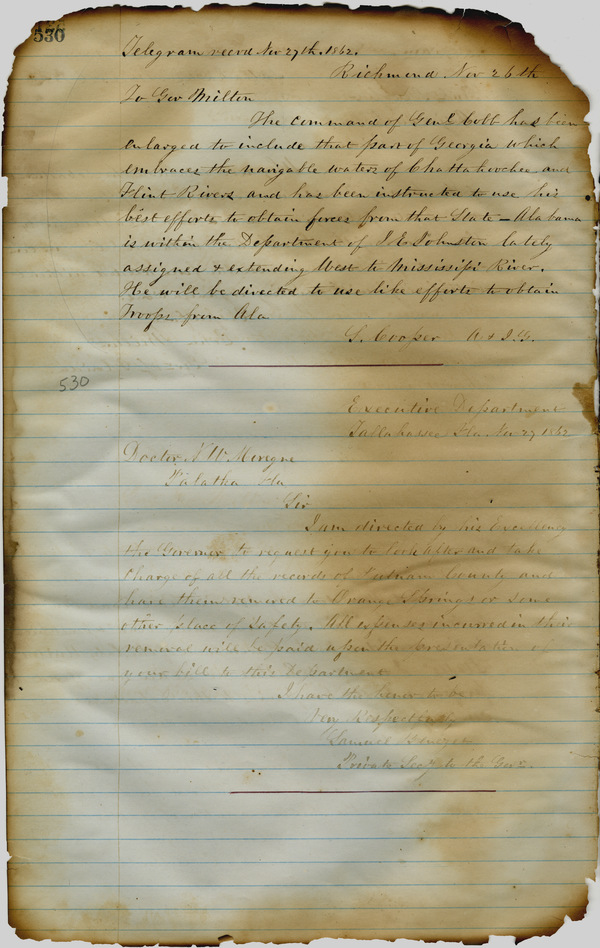 530
Telegram recvd Nov 27th. 1862.
Richmond Nov 26th
To Gov Milton
The command of Genl Cobb has been
enlarged to include that part of Georgia which
embraces the navigable waters of Chattahoochee and
Flint Rivers and has been instructed to use his
best efforts to obtain forces from that State – Alabama
is within the Department of J E Johnston lately
assigned & extending West to Mississipi River.
He will be directed to use like efforts to obtain
Troops from Ala
S. Cooper A & I. G.
530
Executive Department
Tallahassee Fla Nov 27 1862
Doctor N W
Palatka Fla
Sir
I am directed by his Excellency
the Governor to request you to look after and take
charge of all the records of Putnam County and
have them removed to Orange Springs or some
other place of safety. All expenses incurred in this
removal will be paid upon the presentation of
your bill to this Department
I have the honor to be
Very Respectfully
Samuel
Private Secy to the Gov.